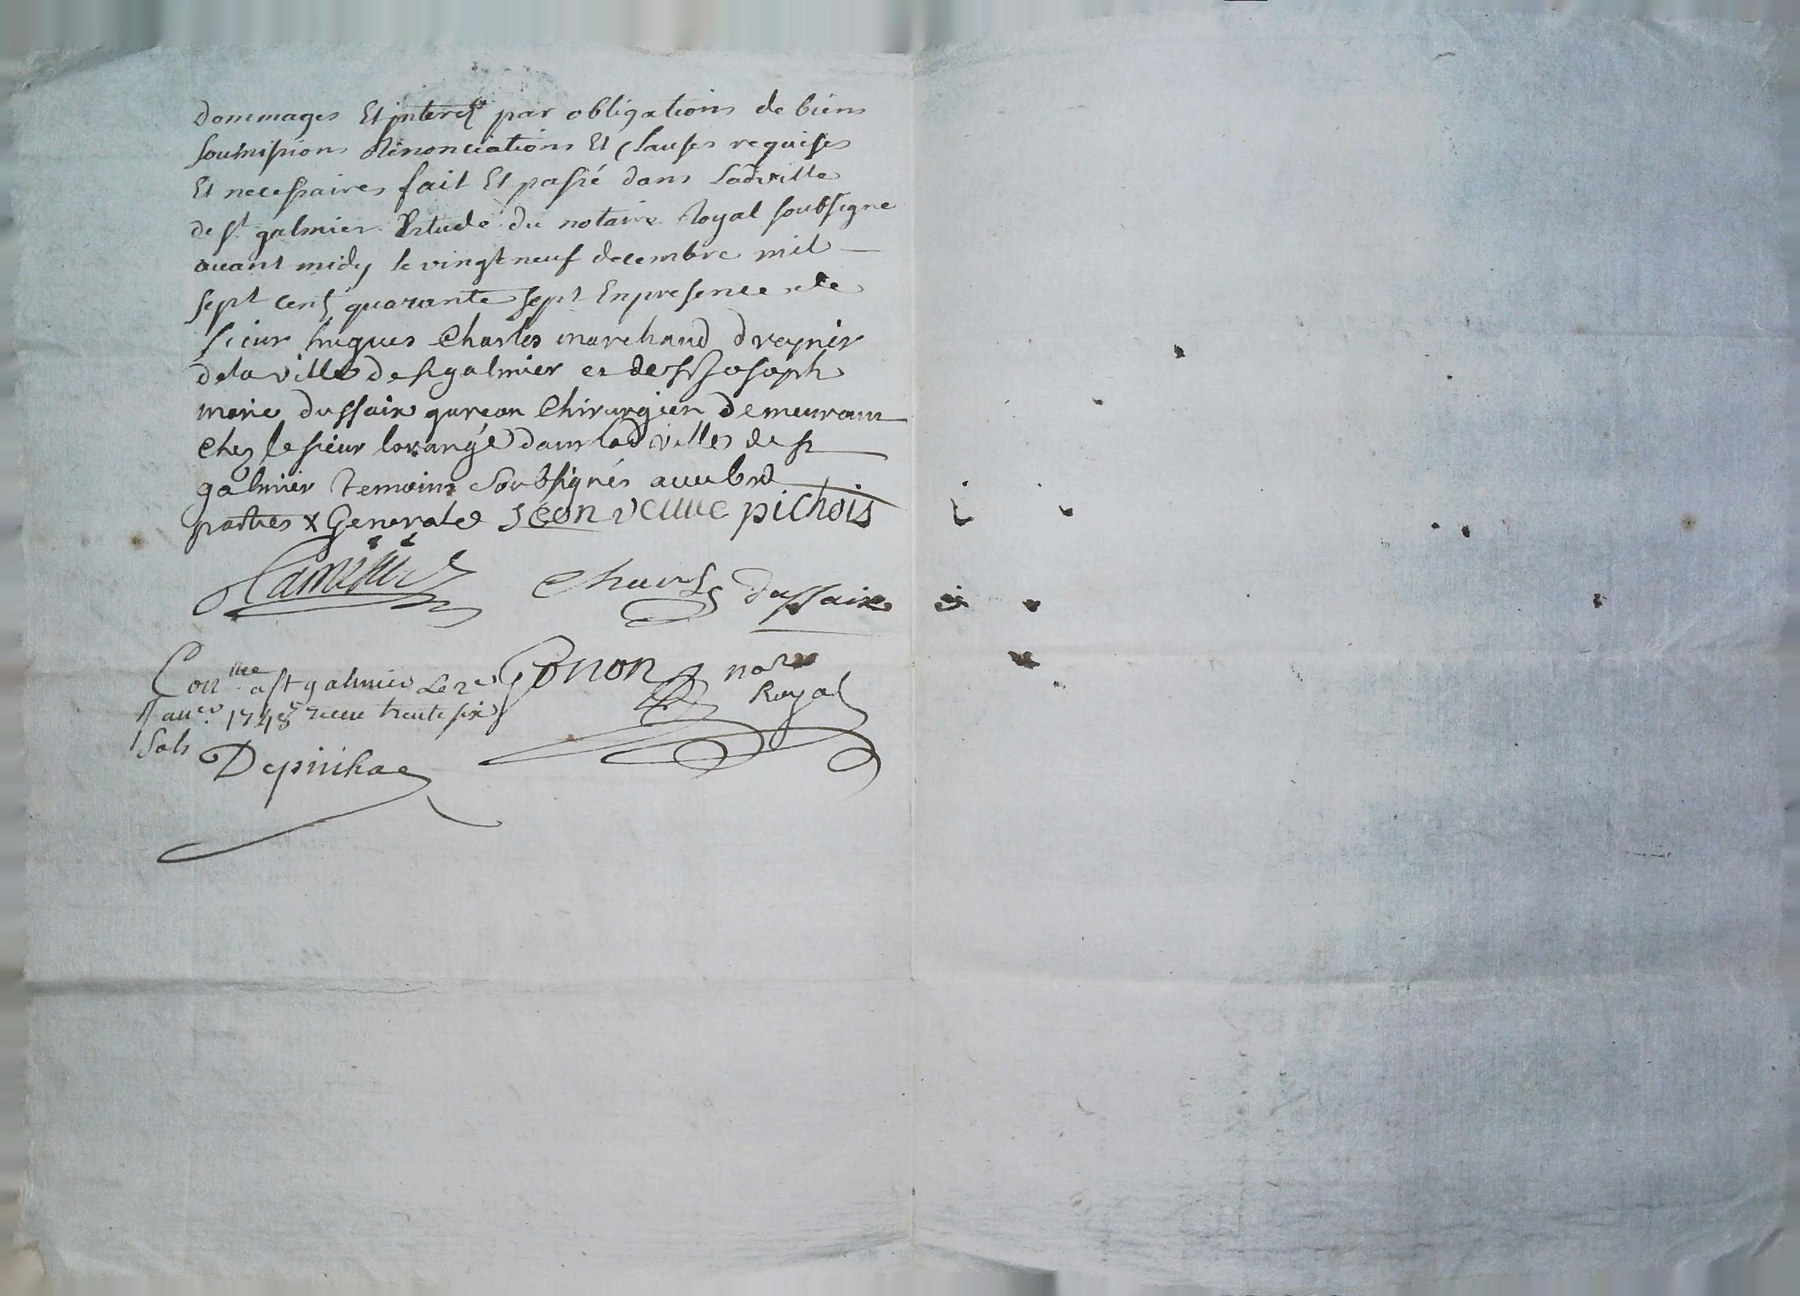 dommages Et interest par obligations de biens
soumissions Renonciations Et Clauses requises
Et necessaires fait Et passé dans Ladville
de st galmier Estude du notaire Royal soubsigne
auant midy le vingt neuf decembre mil
sept cent quarante sept En presence de
sieur hugues Charles marchand
de la ville de st galmier et de sr Joseph
marie dussaix garcon Chirurgien demeurant
Chez le sieur lorange dans lad ville de st
galmier temoins soubsignés auec lesd
parties x Generale Jeon veuue pichois
Charles dussaix
Con.lle a st galmier Le 2e Gonon nore
Janer 1748 receu trente six Royal
sols
Depinhac